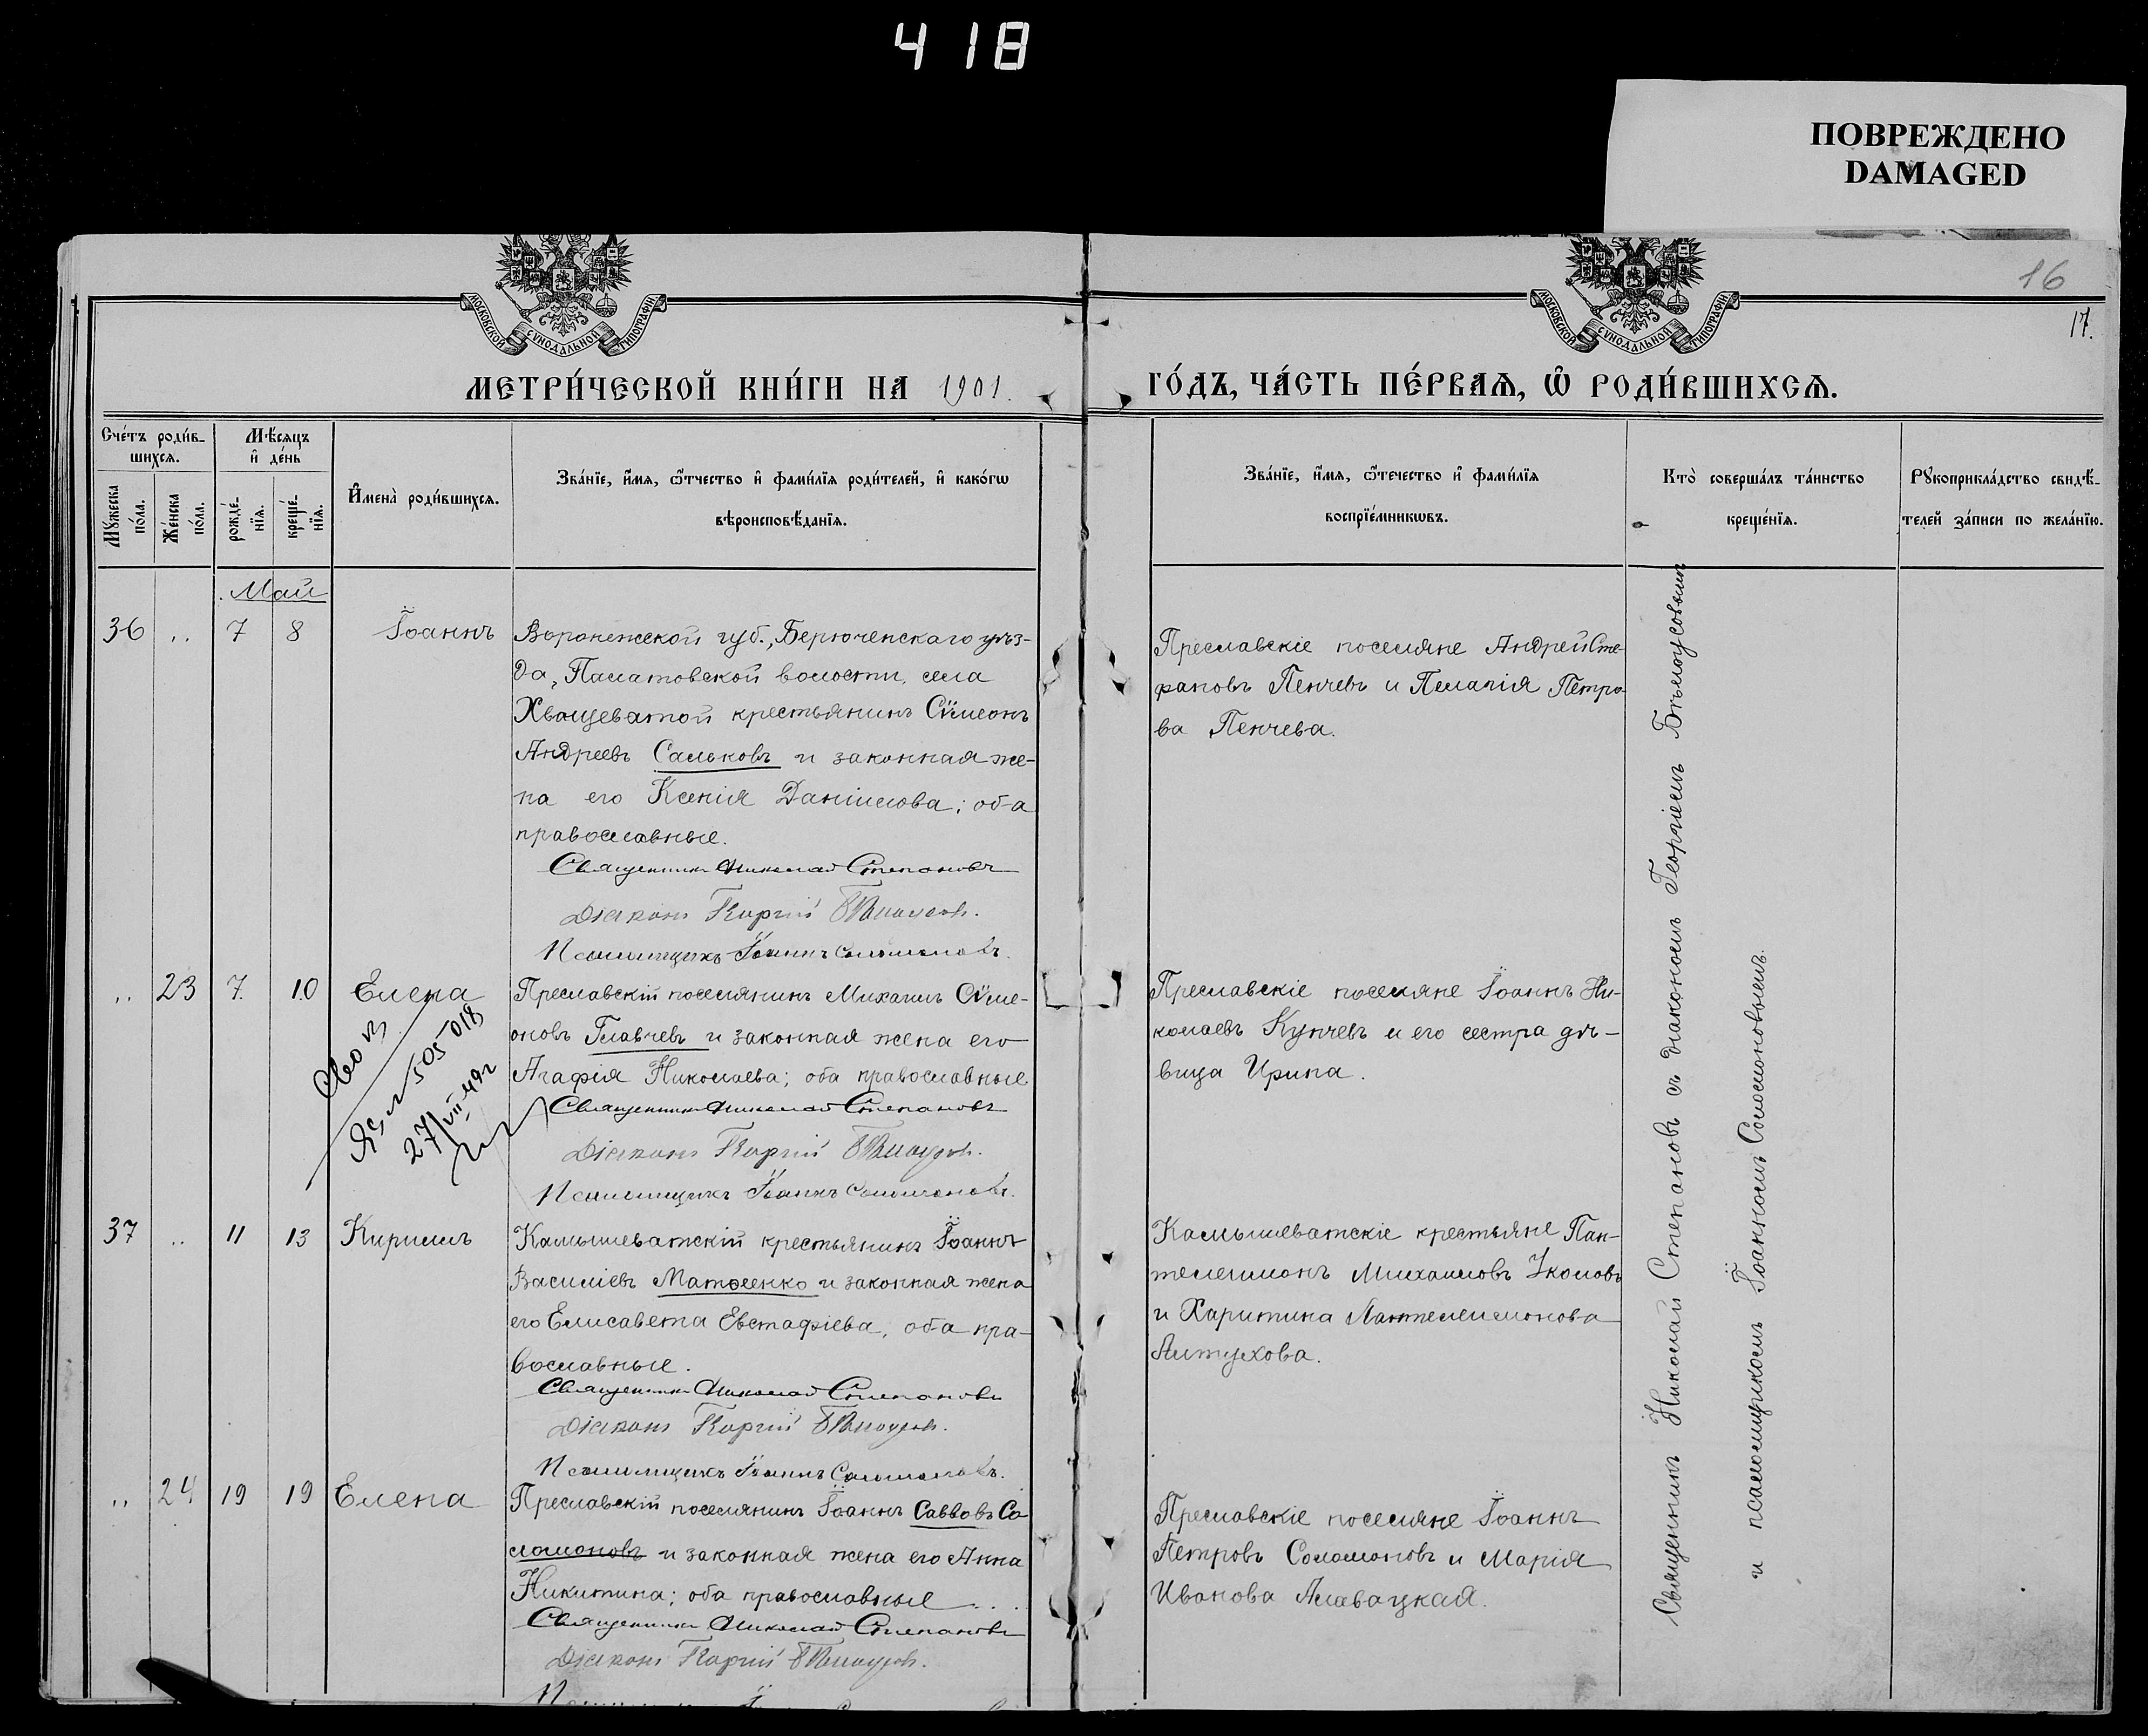 418
ПОВРЕЖДЕНО
DAMAGED
16
17.
МОСКОВСКОЙ СѴНОДАЛЬНОЙ ТИПОГРАФІИ
МОСКОВСКОЙ СѴНОДАЛЬНОЙ ТИПОГРАФІИ
МЕТРИ́ЧЕСКОЙ КНИ́ГИ НА 1901.
ГО́ДЪ, ЧА́СТЬ ПЕ́РВАѦ, Ѡ҆ РОДИ́ВШИХСѦ.
Сче́тъ роди́в-
шихсѧ.
Мꙋ́жеска по́ла.
Же́нска по́ла.
Мѣ́сѧцъ
и҆ де́нь
рожде́-
нїѧ.
креще́-
нїѧ.
И҆мена̀ роди́вшихсѧ.
Зва́нїе, и҆́мѧ, ѻ҆́тчество и҆ фами́лїѧ роди́телей, и҆ како́гѡ
вѣроисповѣ́данїѧ.
Зва́нїе, и҆́мѧ, ѻ҆́течество и҆ фами́лїѧ
воспрїе́мникѡвъ.
Кто̀ соверша́лъ та́инство
креще́нїѧ.
Рꙋкоприкла́дство свидѣ́-
телей за́писи по жела́нїю.
Май
36 .. 7 8 Іоаннъ
Воронежской губ., Берюченскаго уѣз-
да, Палатовской волости, села
Хвощеватой крестьянинъ Сѷмеонъ
Андреевъ Сальковъ и законная же-
на его Ксенія Даніилова; оба
православные.
Священникъ Николай Степановъ
Діаконъ Георгій Бѣлоусовъ.
Псаломщикъ Іоаннъ Соломоновъ.
Преславскіе поселяне Андрей Сте-
фановъ Пенчевъ и Пелагія Петро-
ва Пенчева.
.. 23 7. 10 Елена
Преславскій поселянинъ Михаилъ Сѷме-
оновъ Главчевъ и законная жена его
Агафія Николаева; оба православные
Священникъ Николай Степановъ
Діаконъ Георгій Бѣлоусовъ.
Псаломщикъ Іоаннъ Соломоновъ.
505018
27/VII-49г
Преславскіе поселяне Іоаннъ Ни-
колаевъ Кунчевъ и его сестра дѣ-
вица Ирина.
37 .. 11 13 Кириллъ
Камышеватскій крестьянинъ Іоаннъ
Василіевъ Матюенко и законная жена
его Елисавета Евстафіева, оба пра-
вославные.
Священникъ Николай Степановъ
Діаконъ Георгій Бѣлоусовъ.
Псаломщикъ Іоаннъ Соломоновъ.
Камышеватскіе крестьяне Пан-
телеимонъ Михаиловъ Уколовъ
и Харитина Пантелеимонова
Алтухова.
.. 24 19 19 Елена
Преславскій поселянинъ Іоаннъ Савовъ Со-
ломоновъ и законная жена его Анна
Никитина; оба православные...
Священникъ Николай Степановъ
Діаконъ Георгій Бѣлоусовъ.
Преславскіе поселяне Іоаннъ
Петровъ Соломоновъ и Марія
Иванова Главацкая.
Священникъ Николай Степановъ съ діакономъ Георгіемъ Бѣлоусовымъ
и псаломщикомъ Іоанномъ Соломоновымъ.